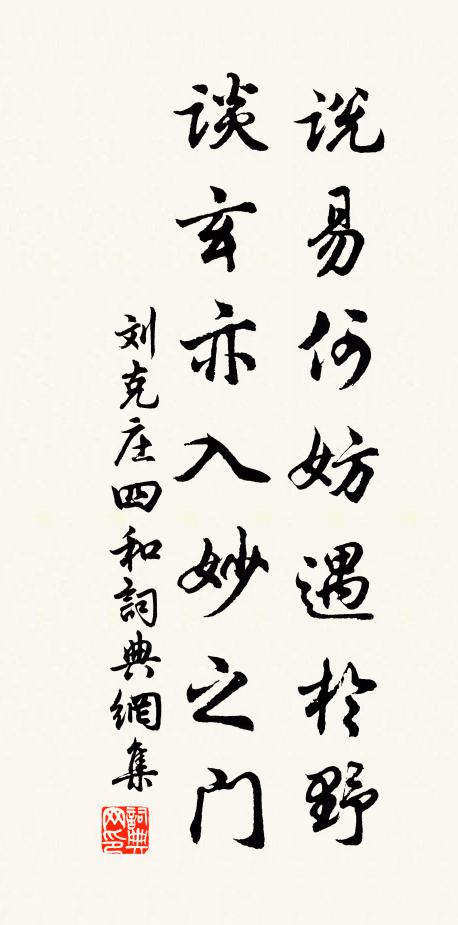 说易何妨遇於野
谈玄亦入妙之门
刘克庄四和詞典網集
詞典网印